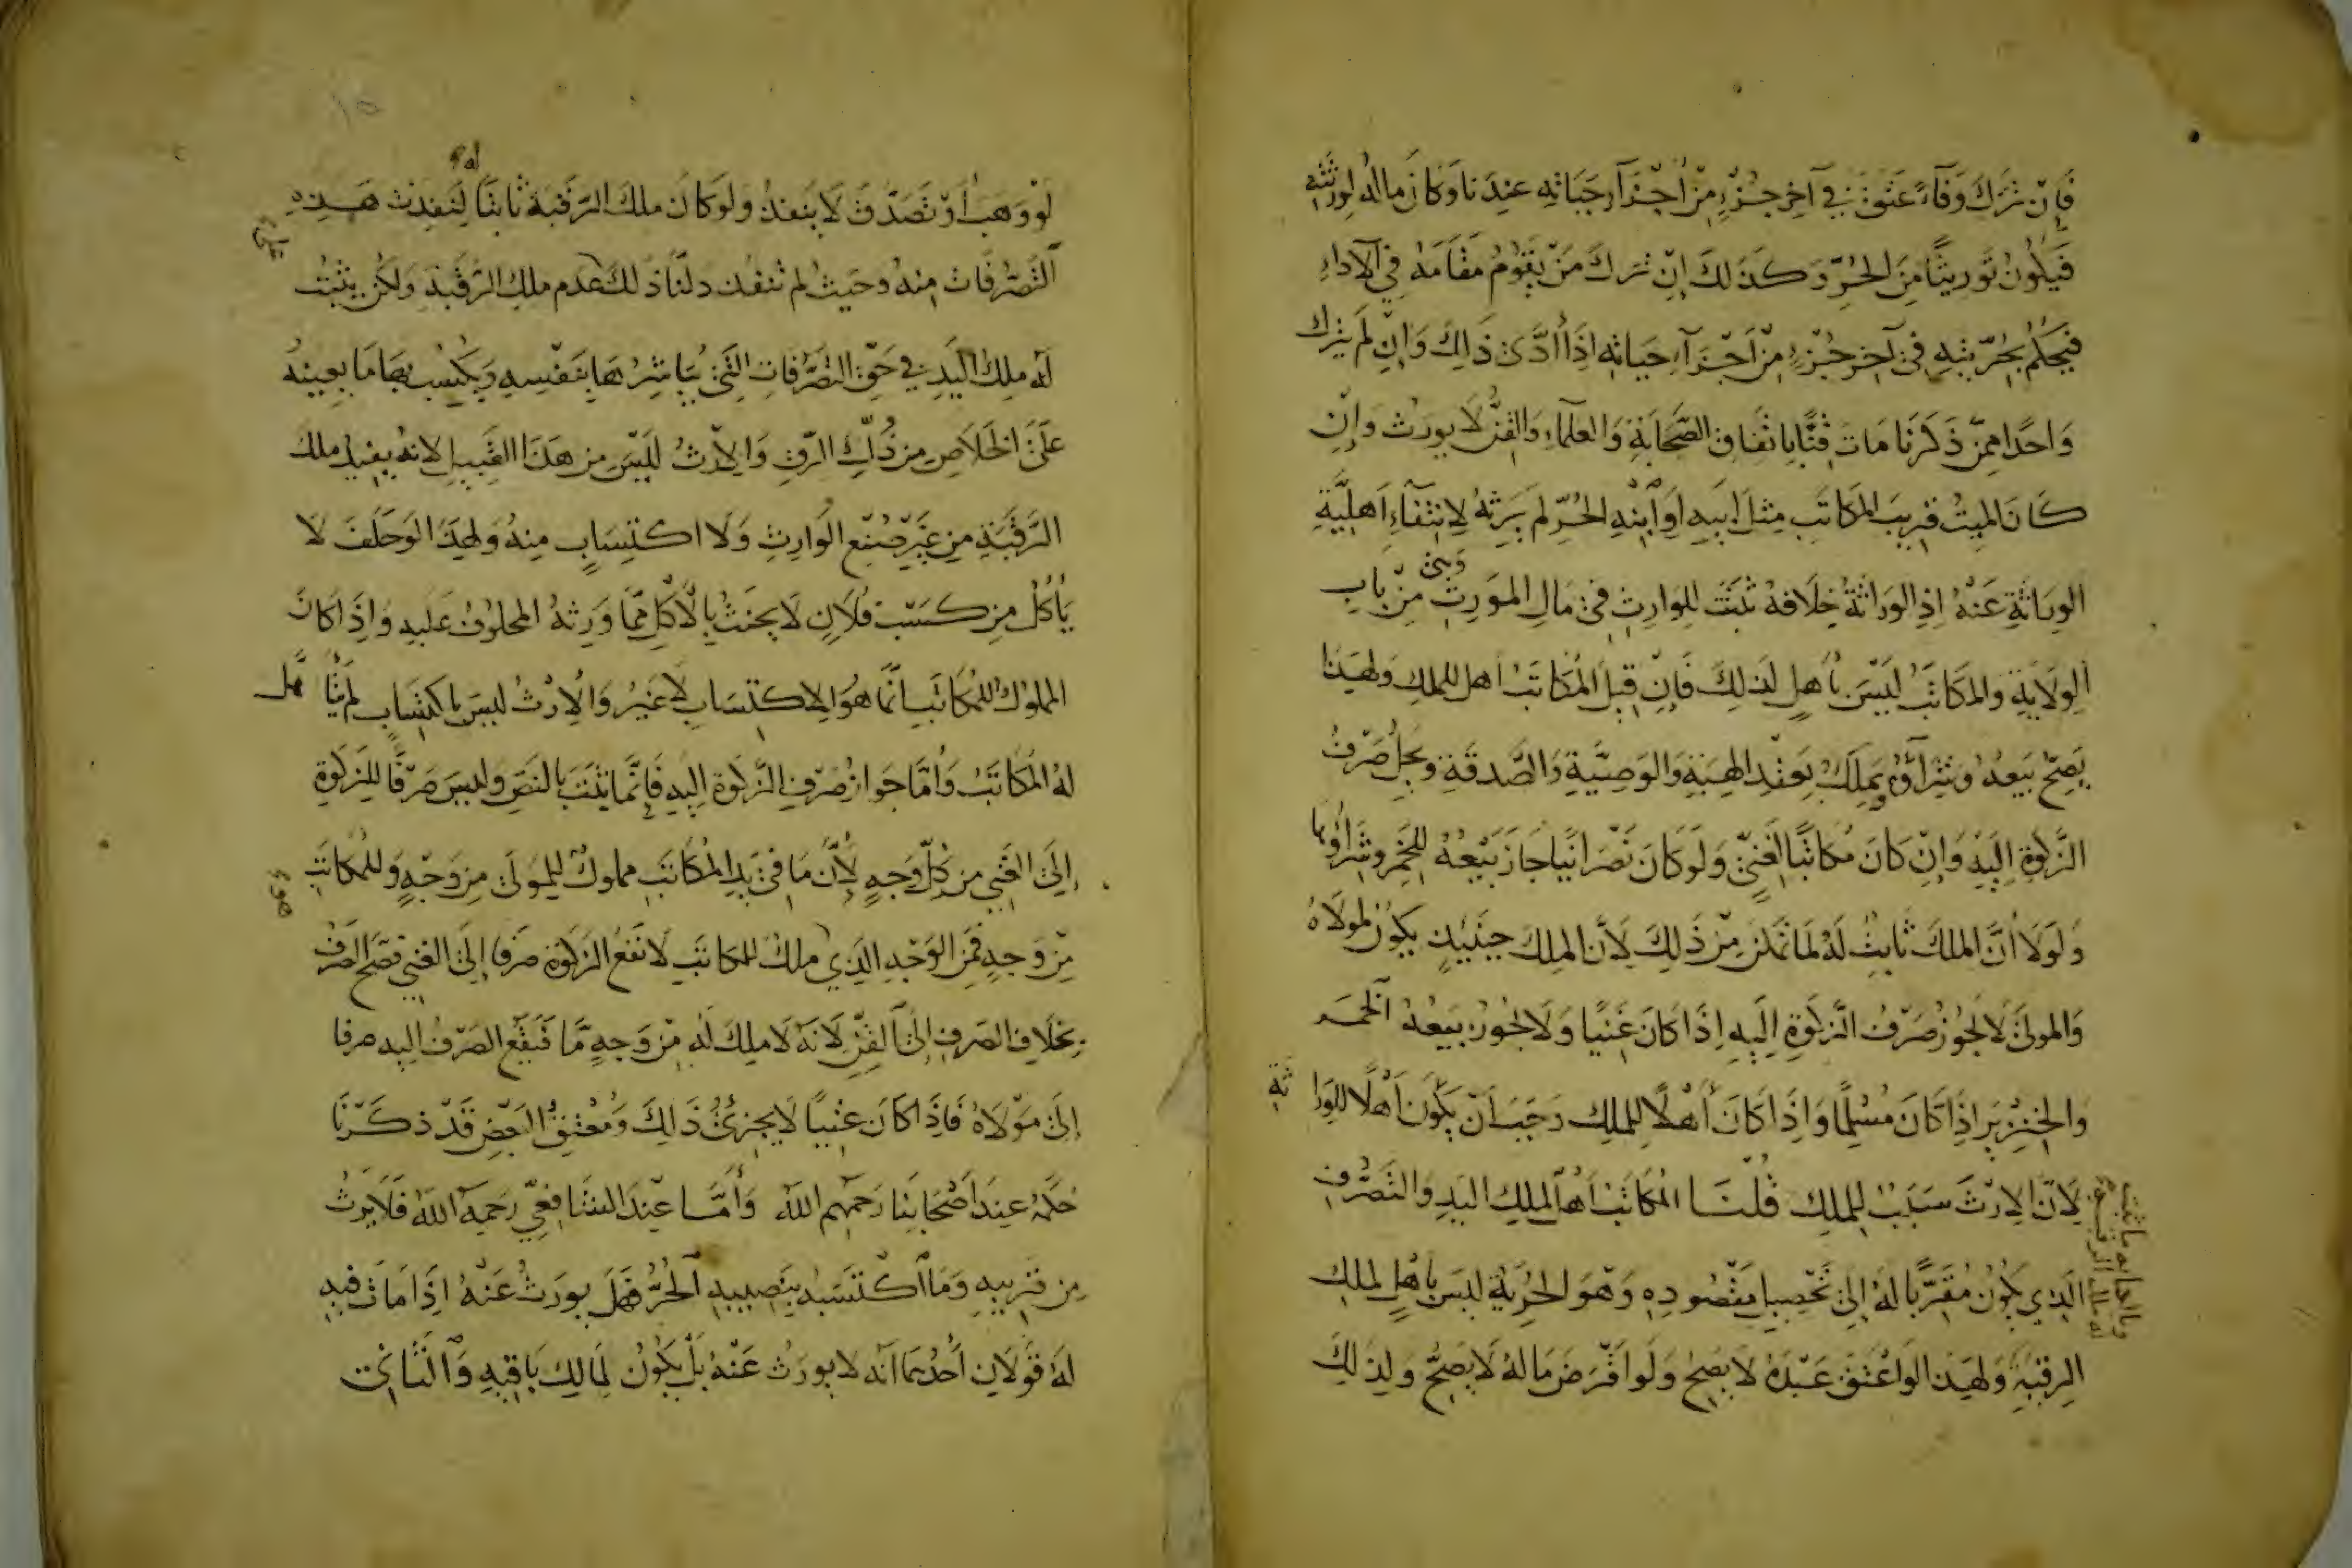 فَإِنْ تَرَكَ وَفَاءً عَتَقَ فِي آخِرِ جُزْءٍ مِنْ أَجْزَآءِ حَيَاتِهِ عِنْدَنَا وَكَانَ مَالُهُ لِوَرَثَتِهِ
فَيَكُونُ تَوْرِيثًا مِنَ الْحُرِّ وَكَذَلِكَ إِنْ تَرَكَ مَنْ يَقُومُ مَقَامَهُ فِي الْأَدَاءِ
فَيُحْكَمُ بِحُرِّيَّتِهِ فِي آخِرِ جُزْءٍ مِنْ أَجْزَآءِ حَيَاتِهِ إِذَا أَدَّى ذَلِكَ وَإِنْ لَمْ يَتْرُكْ
وَاحِدًا مِمَّنْ ذَكَرْنَا مَاتَ قِنًّا بِاتِّفَاقِ الصَّحَابَةِ وَالْعُلَمَاءِ وَالْقِنُّ لَا يُورَثُ وَإِنْ
كَانَ الْمَيِّتُ قَرِيبَ الْمُكَاتَبِ مِثْلَ أَبِيهِ أَوِ ابْنِهِ الْحُرِّ لَمْ يَرِثْهُ لِانْتِفَاءِ أَهْلِيَّةِ
الْوِرَاثَةِ عَنْهُ إِذِ الْوِرَاثَةُ خِلَافَةٌ تَثْبُتُ لِلْوَارِثِ فِي مَالِ الْمُوَرِّثِ وَهِيَ مِنْ بَابِ
الْوِلَايَةِ وَالْمُكَاتَبُ لَيْسَ بِأَهْلٍ لِذَلِكَ فَإِنْ قِيلَ الْمُكَاتَبُ أَهْلٌ لِلْمِلْكِ وَلِهَذَا
يَصِحُّ بَيْعُهُ وَشِرَآؤُهُ وَيَمْلِكُ بِعَقْدِ الْهِبَةِ وَالْوَصِيَّةِ وَالصَّدَقَةِ وَيَحِلُّ صَرْفُ
الزَّكٰوةِ إِلَيْهِ وَإِنْ كَانَ مُكَاتَبًا لِغَنِيٍّ وَلَوْ كَانَ نَصْرَانِيًّا جَازَ بَيْعُهُ لِلْخَمْرِ وَشِرَاؤُهَا
وَلَوْلَا أَنَّ الْمِلْكَ ثَابِتٌ لَهُ لَمَا تَمَكَّنَ مِنْ ذَلِكَ لِأَنَّ الْمِلْكَ حِينَئِذٍ يَكُونُ لِمَوْلَاهُ
وَالْمَوْلَى لَا يَجُوزُ صَرْفُ الزَّكٰوةِ إِلَيْهِ إِذَا كَانَ غَنِيًّا وَلَا يَجُوزُ بَيْعُهُ الْخَمْرَ
وَالْخِنْزِيرَ إِذَا كَانَ مُسْلِمًا وَإِذَا كَانَ أَهْلًا لِلْمِلْكِ وَجَبَ أَنْ يَكُونَ أَهْلًا لِلْوِرَاثَةِ
لِأَنَّ الْإِرْثَ سَبَبٌ لِلْمِلْكِ قُلْنَا الْمُكَاتَبُ أَهْلٌ لِمِلْكِ الْيَدِ وَالتَّصَرُّفِ
الَّذِي يَكُونُ مُقَرِّبًا لَهُ إِلَى تَحْصِيلِ مَقْصُودِهِ وَهُوَ الْحُرِّيَّةُ لَيْسَ بِأَهْلٍ لِمِلْكِ
الرَّقَبَةِ وَلِهَذَا لَوْ أَعْتَقَ عَبْدَهُ لَا يَصِحُّ وَلَوْ أَقْرَضَ مَالَهُ لَا يَصِحُّ وَلِذَلِكَ
لَوْ وَهَبَ أَوْ تَصَدَّقَ لَا يَنْفُذُ وَلَوْ كَانَ مِلْكُ الرَّقَبَةِ ثَابِتًا لَهُ لَنَفَذَتْ هَذِهِ
التَّصَرُّفَاتُ مِنْهُ وَحَيْثُ لَمْ تَنْفُذْ دَلَّنَا ذَلِكَ عَلَى عَدَمِ مِلْكِ الرَّقَبَةِ وَلَكِنْ يَثْبُتُ
لَهُ مِلْكُ الْيَدِ فِي حَقِّ التَّصَرُّفَاتِ الَّتِي يُبَاشِرُهَا بِنَفْسِهِ وَيَكْسِبُ بِهَا مَا يُعِينُهُ
عَلَى الْخَلَاصِ مِنْ ذُلِّ الرِّقِّ وَالْإِرْثُ لَيْسَ مِنْ هَذَا الْقَبِيلِ لِأَنَّهُ يُفِيدُ مِلْكَ
الرَّقَبَةِ مِنْ غَيْرِ صُنْعِ الْوَارِثِ وَلَا اكْتِسَابٍ مِنْهُ وَلِهَذَا لَوْ حَلَفَ لَا
يَأْكُلُ مِنْ كَسْبِ فُلَانٍ لَا يَحْنَثُ بِالْأَكْلِ مِمَّا وَرِثَهُ الْمَحْلُوفُ عَلَيْهِ وَإِذَا كَانَ
الْمَمْلُوكُ لِلْمُكَاتَبِ إِنَّمَا هُوَ الِاكْتِسَابُ لَا غَيْرُ وَالْإِرْثُ لَيْسَ بِاكْتِسَابٍ لَمْ يَتَأَهَّلْ
لَهُ الْمُكَاتَبُ وَأَمَّا جَوَازُ صَرْفِ الزَّكٰوةِ إِلَيْهِ فَإِنَّمَا يَثْبُتُ بِالنَّصِّ وَلَيْسَ صَرْفًا لِلزَّكٰوةِ
إِلَى الْغَنِيِّ مِنْ كُلِّ وَجْهٍ لِأَنَّ مَا فِي يَدِ الْمُكَاتَبِ مَمْلُوكٌ لِلْمَوْلَى مِنْ وَجْهٍ وَلِلْمُكَاتَبِ
مِنْ وَجْهٍ فَمِنَ الْوَجْهِ الَّذِي هُوَ مِلْكٌ لِلْمُكَاتَبِ لَا تَقَعُ الزَّكٰوةُ صَرْفًا إِلَى الْغَنِيِّ فَصَحَّ الصَّرْفُ
بِخِلَافِ الصَّرْفِ إِلَى الْقِنِّ لِأَنَّهُ لَا مِلْكَ لَهُ مِنْ وَجْهٍ مَّا فَيَقَعُ الصَّرْفُ إِلَيْهِ صَرْفًا
إِلَى مَوْلَاهُ فَإِذَا كَانَ غَنِيًّا لَا يُجْزِئُ ذَلِكَ وَمُعْتَقُ الْبَعْضِ قَدْ ذَكَرْنَا
حُكْمَهُ عِنْدَ أَصْحَابِنَا رَحِمَهُمُ اللَّهُ وَأَمَّا عِنْدَ الشَّافِعِيِّ رَحِمَهُ اللَّهُ فَلَا يَرِثُ
مِنْ قَرِيبِهِ وَمَا اكْتَسَبَهُ بِنَصِيبِهِ الْحُرِّ فَهَلْ يُورَثُ عَنْهُ إِذَا مَاتَ فِيهِ
لَهُ قَوْلَانِ أَحَدُهُمَا أَنَّهُ لَا يُورَثُ عَنْهُ بَلْ يَكُونُ لِمَالِكِ بَاقِيهِ وَالثَّانِي